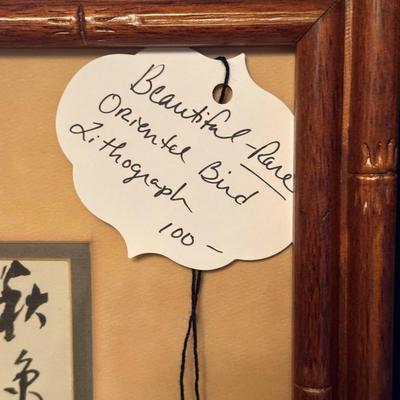 Beautiful - Rare
Oriental Bird
Lithograph
100 -
秋